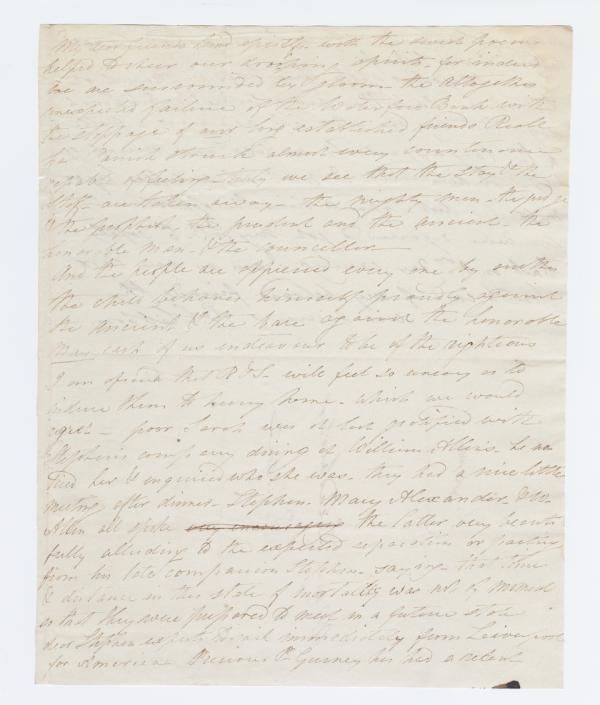 My dear friends kind epistle with the sweet poem
helped to cheer our drooping spirits for indeed
we are surrounded by gloom the altogether
unexpected failure of the Waterford Bank with
the stoppage of our long established friends
struck almost every countenance
capable of feeling truly we see that the stay & the
staff are taken away the mighty man the judge
& the prophet, the prudent and the ancient the
honorable man & the councellor
And the people are oppressed every one by another
the child behaves himself proudly against
the ancient & the base against the honorable
May each of us endeavour to be of the righteous
I am afraid that R & S will feel so uneasy as to
induce them to hurry home which we would
regret poor Sarah was at last gratified with
Stephens company dining at William Allens he no
ticed her & enquired who she was they had a nice little
meeting after dinner Stephen, Mary Alexander & Wm
Allen all spoke very encouraging the latter very beauti
fully alluding to the expected separation or parting
from his late companion Stephen saying that time
& distance in this state of mortality was not of moment
so that they were prepared to meet in a future state
dear Stephen expects to sail immediately from Liverpool
for America Precious P Gurney has had a relent